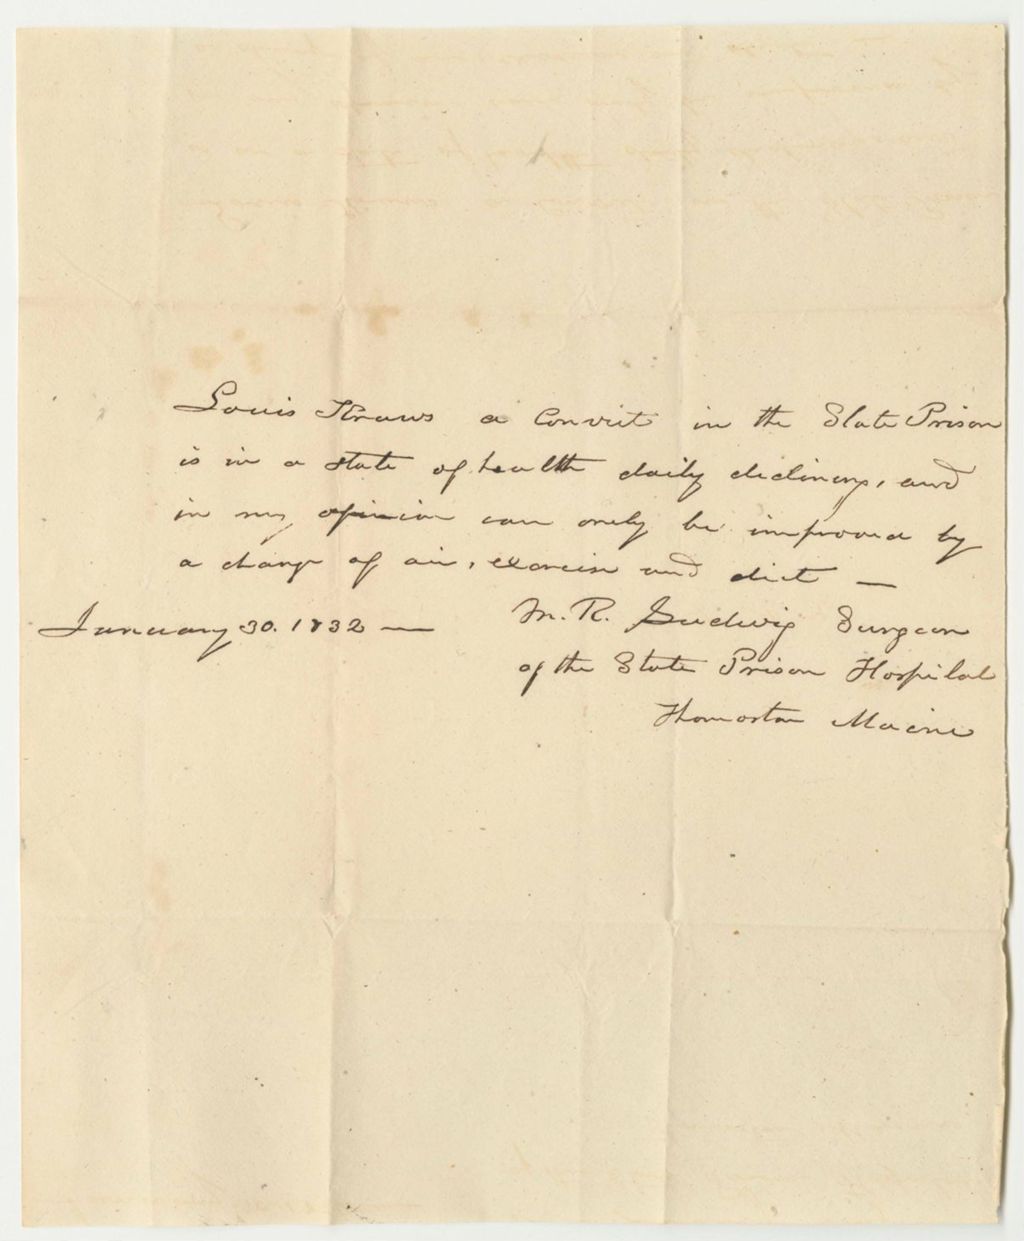 Louis Kraws a Convict in the State Prison
is in a state of health daily declining, and
in my opinion can only be improved by
a change of air, exercise and diet —
January 30. 1832 — M. R. Ludwig Surgeon
of the State Prison Hospital
Thomaston Maine